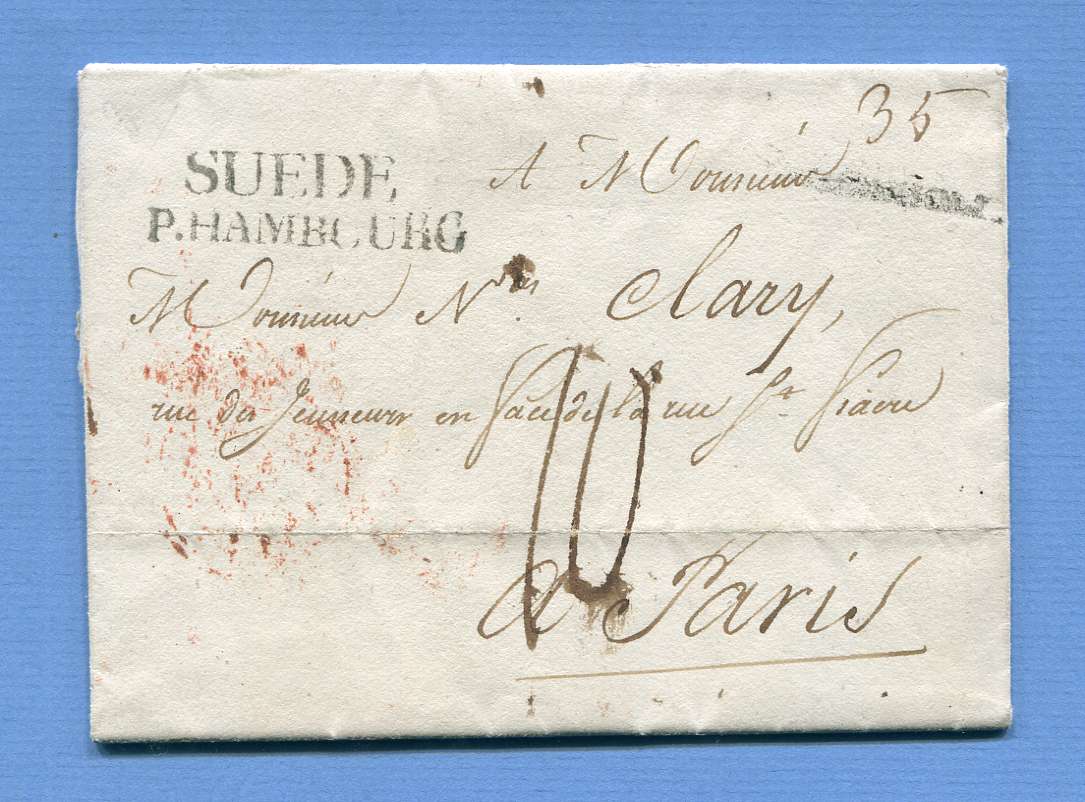 35
SUEDE
P.HAMBOURG
A Monsieur
Monsieur Nas Clary,
rue des Jeuneurs en face de la rue St Fiacre
10
a Paris